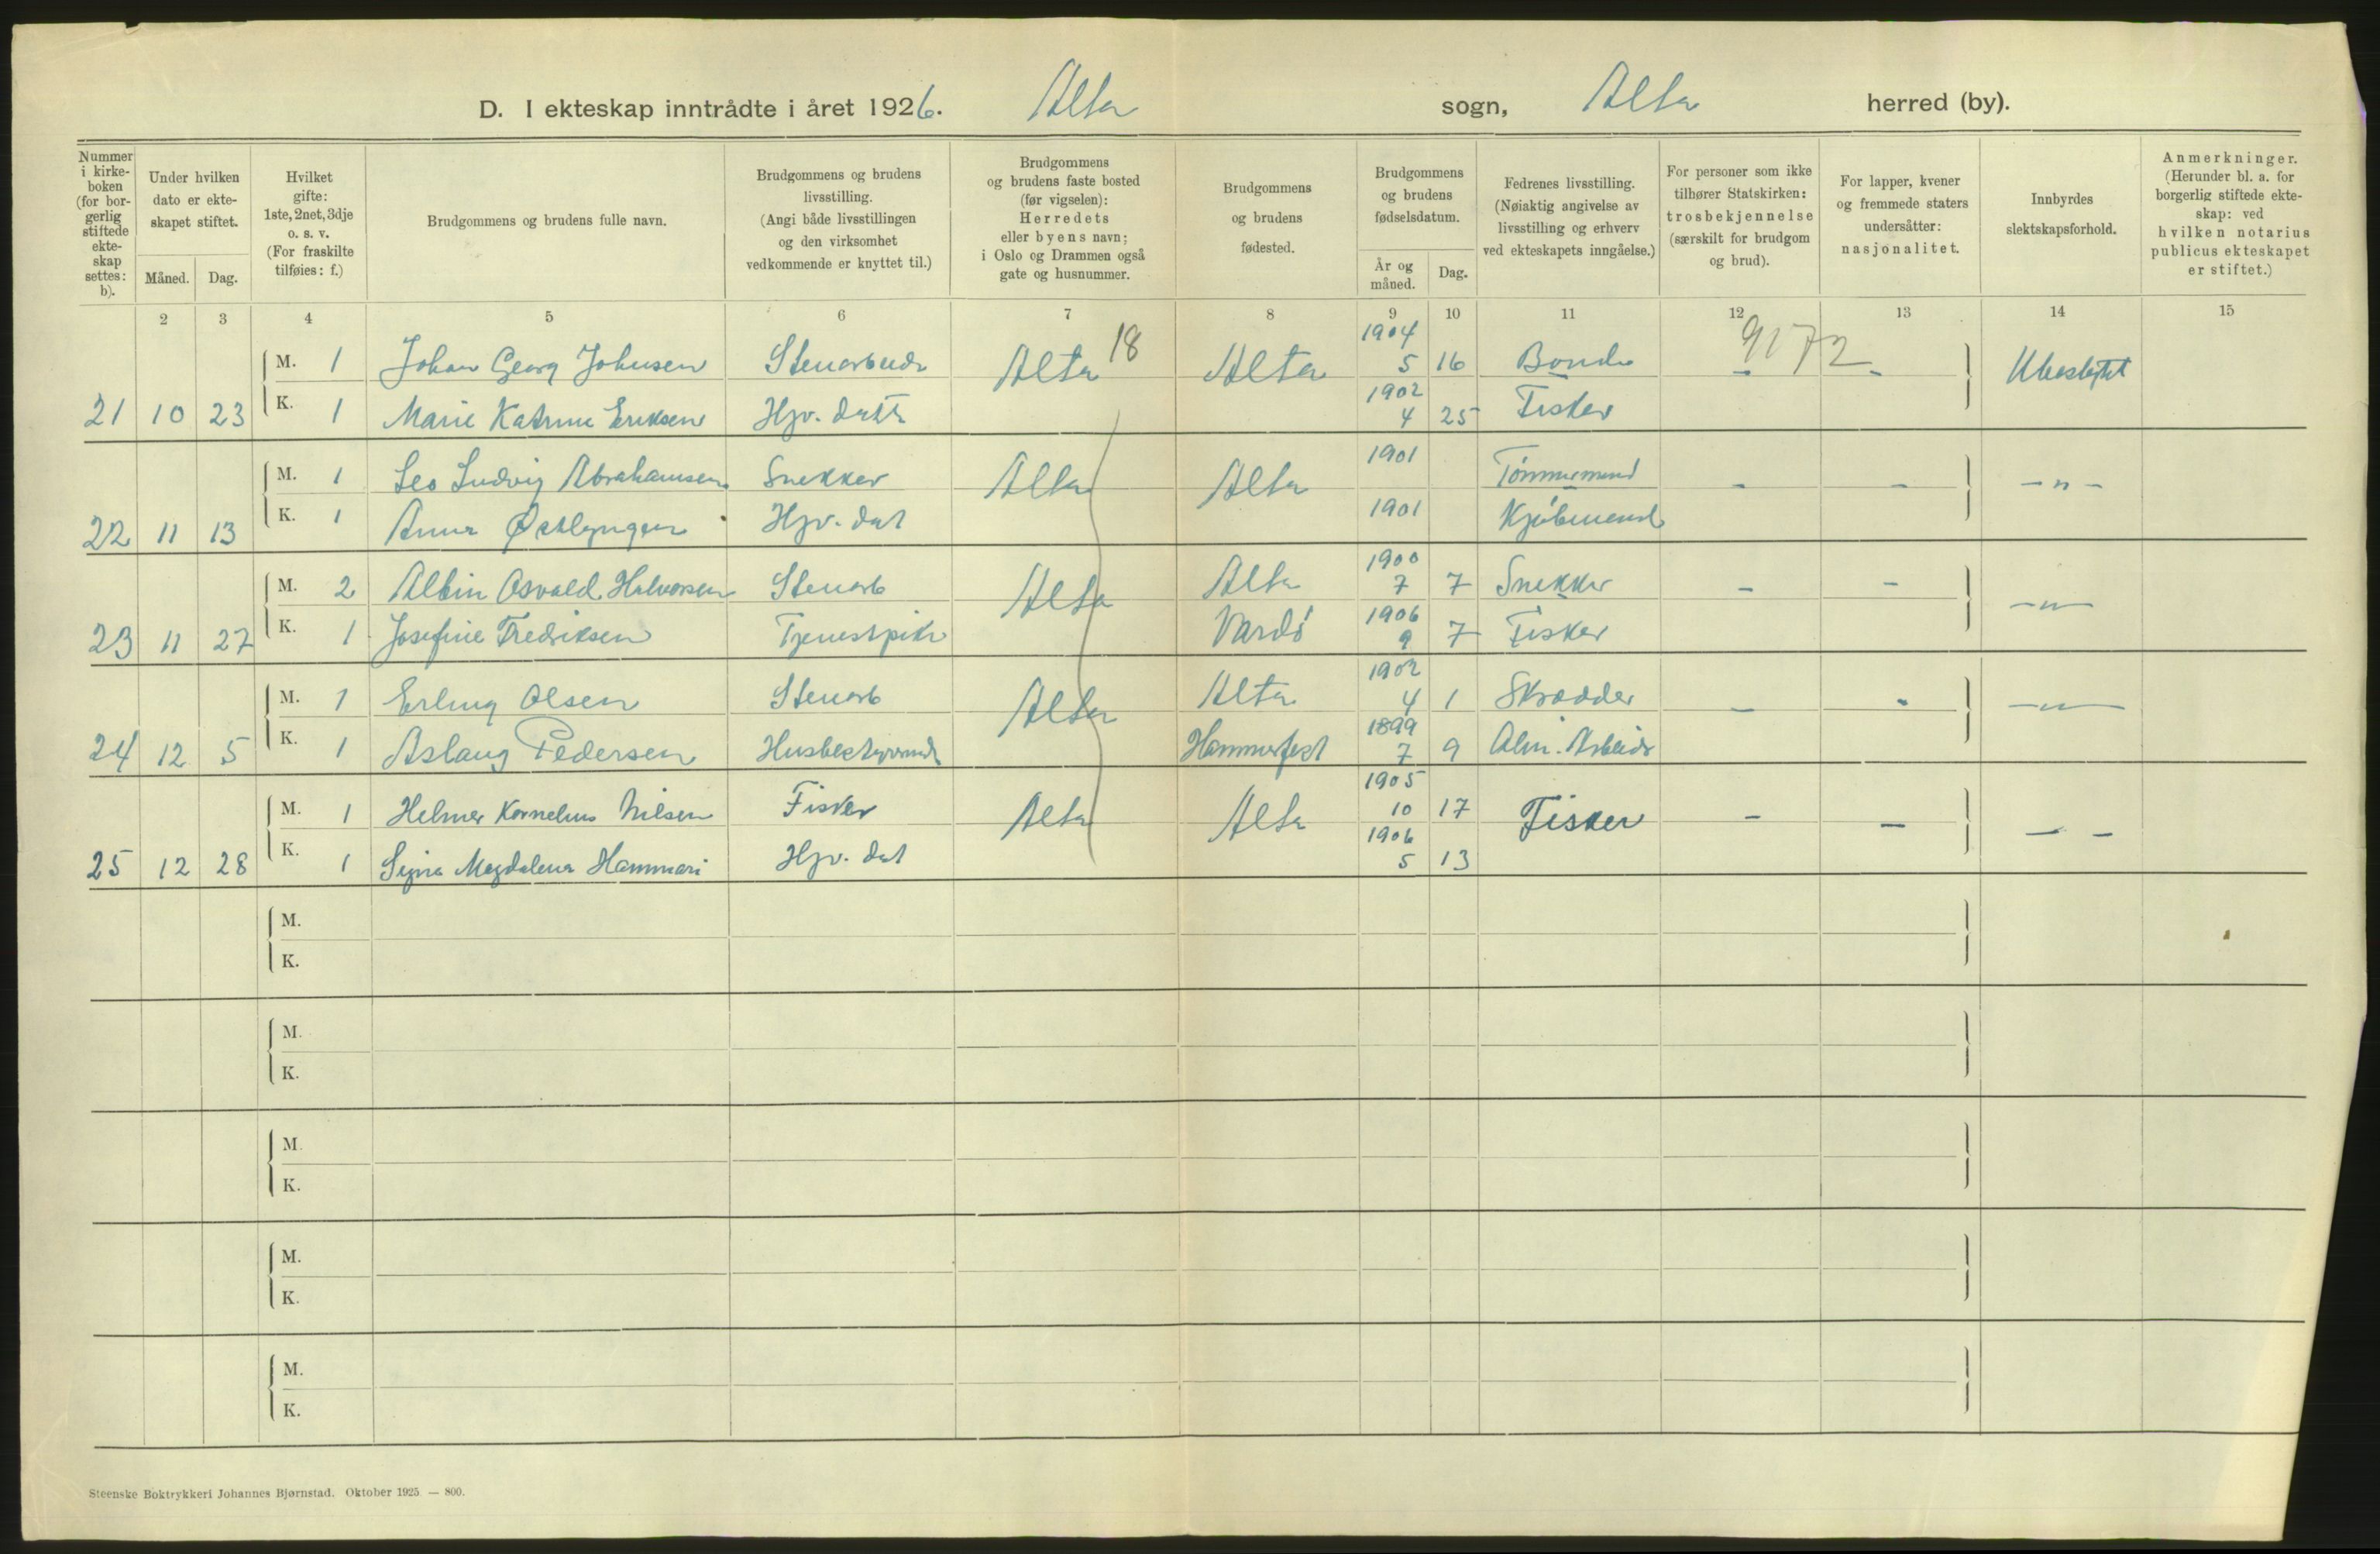 D. I ekteskap inntrådte i året 1926. Alta sogn, Alta herred (by).
Nummer i kirke-boken (for bor-gerlig stiftede ekte-skap settes: b).
Under hvilken dato er ekte-skapet stiftet.
Måned. Dag.
Hvilket gifte: 1ste, 2net, 3dje o. s. v. (For fraskilte tilføies: f.)
Brudgommens og brudens fulle navn.
Brudgommens og brudens livsstilling. (Angi både livsstillingen og den virksomhet vedkommende er knyttet til.)
Brudgommens og brudens faste bosted (før vigselen): Herredets eller byens navn; i Oslo og Drammen også gate og husnummer.
Brudgommens og brudens fødested.
Brudgommens og brudens fødselsdatum.
År og måned. Dag.
Fedrenes livsstilling. (Nøiaktig angivelse av livsstilling og erhverv ved ekteskapets inngåelse.)
For personer som ikke tilhører Statskirken: trosbekjennelse (særskilt for brudgom og brud).
For lapper, kvener og fremmede staters undersåtter: nasjonalitet.
Innbyrdes slektskapsforhold.
Anmerkninger. (Herunder bl. a. for borgerlig stiftede ekte-skap: ved hvilken notarius publicus ekteskapet er stiftet.)
2 3 4 5 6 7 8 9 10 11 12 13 14 15
18 9172
M. 1 Johan Georg Johnsen Stenarbeidr Alta Alta 1904 5 16 Bonde - - Ubeslektet
21 10 23 K. 1 Marie Katrine Eriksen Hjv. dattr 1902 4 25 Fisker
M. 1 Leo Ludvig Abrahamsen Snekker Alta Alta 1901 Tömmermand - - -"-
22 11 13 K. 1 Anna Østlyngen Hjv. dat 1901 Kjöbmand
M. 2 Albin Osvald Halvorsen Stenarb Alta Alta 1900 7 7 Snekker - - -"-
23 11 27 K. 1 Josefine Fredriksen Tjenestpike Vardö 1906 9 7 Fisker
M. 1 Erling Olsen Stenarb Alta Alta 1902 4 1 Skrædder - - -"-
24 12 5 K. 1 Aslaug Pedersen Husbestyrerinde Hammerfest 1899 7 9 Alm. Arbeidr
M. 1 Helmer Kornelius Nilsen Fisker Alta Alta 1905 10 17 Fisker - - - -
25 12 28 K. 1 Signa Magdalena Hammari Hjv. dat 1906 5 13
M.
K.
M.
K.
M.
K.
M.
K.
M.
K.
Steenske Boktrykkeri Johannes Bjørnstad. Oktober 1925 — 800.